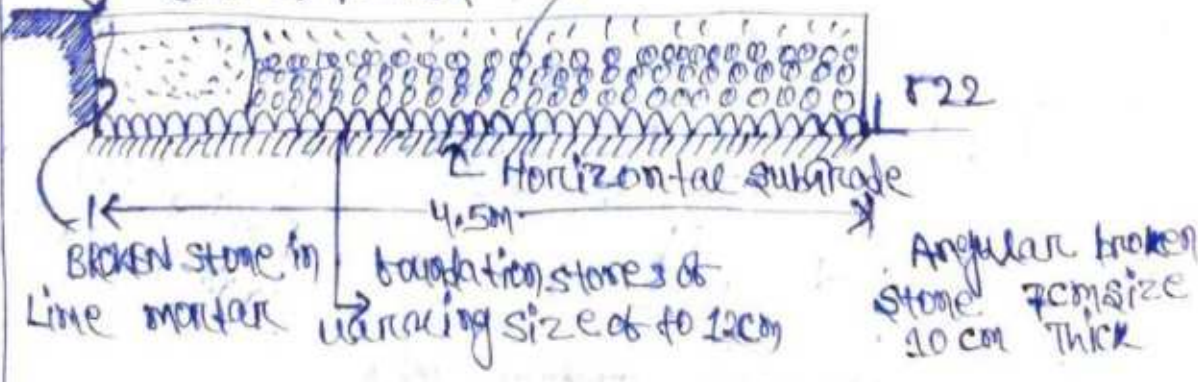 r22
Horizontal subgrade
4.5m
BROKEN stone in
Lime mortar
foundation stones of
varrying size of to 12cm
Angular broken
stone 7cm size
10 cm Thick